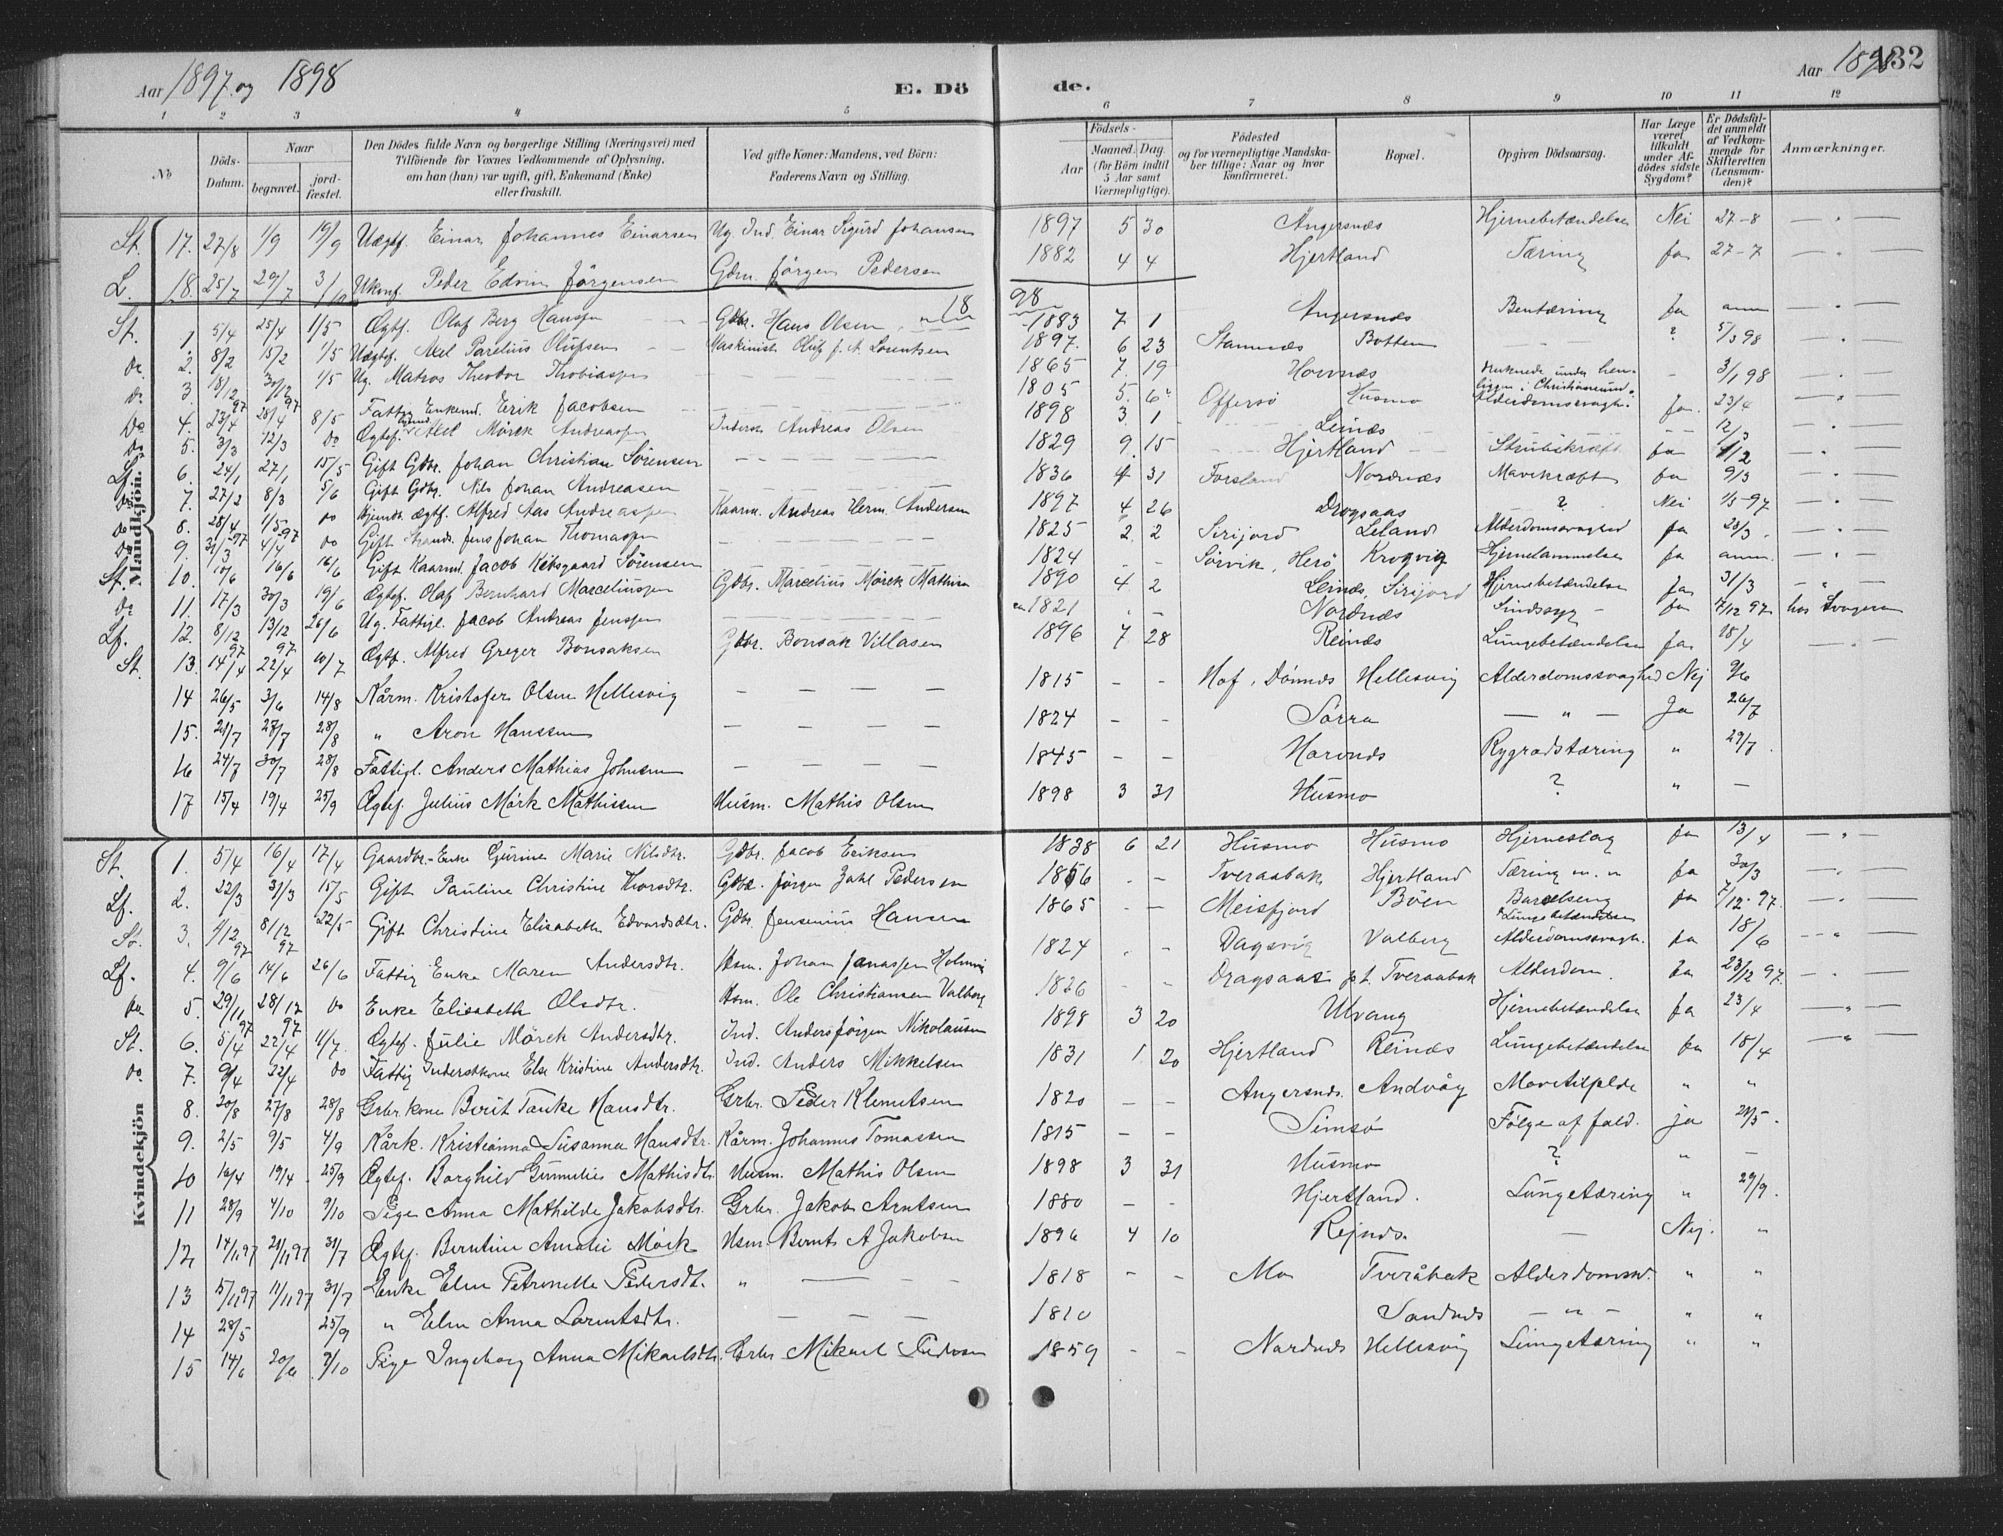 Aar 1897 og 1898 E. Dö de. Aar 1898 132
1 2 3 4 5 6 7 8 9 10 11 12
No
Döds-Datum.
Naar
begravet.
jord-fæstet.
Den Dödes fulde Navn og borgerlige Stilling (Næringsvei) med
Tilföiende for Voxnes Vedkommende af Oplysning,
om han (hun) var ugift, gift, Enkemand (Enke)
eller fraskilt.
Ved gifte Koner: Mandens, ved Börn:
Faderens Navn og Stilling.
Födsels-
Aar
Maaned. Dag.
(for Börn indtil
5 Aar samt
Værnepligtige).
Födested
og for værnepligtige Mandska-
ber tillige: Naar og hvor
konfirmeret.
Bopæl.
Opgiven Dödsaarsag.
Har Læge
været
tilkaldt
under Af-
dödes sidste
Sygdom?
Er Dödsfal-
det anmeldt
af Vedkom-
mende for
Skifteretten
(Lensman-
den)?
Anmærkninger.
Mandkjön.
St. 17. 27/8 1/9 19/9 Uægtf. Einar Johannes Einarsen Ug. Ind. Einar Sigurd Johansen 1897 5 30 Angersnæs Hjernebetændelse Nei 27-8 — " —
L. 18. 25/7 29/7 3/10 Ukonf. Peder Edvin Jörgensen Gdm. Jörgen Pedersen 1882 4 4 Hjertland Tæring Ja 27-7 — " —
18 98
St. 1. 5/4 25/4 1/5 Ægtf. Olaf Berg Hansen Gdbr. Hans Olsen 1883 7 1 Angersnæs Bentæring Ja anm — " —
do 2. 8/2 15/2 1/5 Uægtf. Axel Parelius Olufsen Maskinist Oluf J. A. Lorentsen 1897 6 23 Stamnæs Botten — ? 5/3 98 — " —
do 3. 18/12 97 30/12 97 1/5 Ug. Matros Theodor Thobiassen — — — 1865 7 19 Hornnæs druknede under hen-
liggen i Christianssund — 3/1 98 — " —
do 4. 23/4 28/4 8/5 Fattig Enkemd. Erik Jacobsen — — — 1805 5 6 Offersö Husmo Alderdomssvagh. Ja 23/4 — " —
do 5. 3/3 12/3 do Ægtef. Axel Mörck Andreassen Inderst Andreas Olsen 1898 3 1 Leinæs — — 12/3 — " —
Lf. 6. 24/1 27/1 15/5 Gift Gdbr. Johan Christian Sörensen — — — 1829 9 15 Hjertland Strubekræft Ja 1/2 — " —
do 7. 27/2 8/3 5/6 Gift Gdbr. Nils Johan Andreasen — — — 1836 4 31 Forsland Nordnæs Mavekræft Ja 9/3 — " —
do 8. 28/4 97 1/5 97 do Hjemdb. ægtf. Alfred Aas Andreassen Kaarm. Andreas Herm. Andersen 1897 4 26 Dragsaas ? Nei 1/5-97 — " —
do 9. 31/3 4/4 do Gift Strands. Jens Johan Thomassen — — — 1825 2 2 Sirijord Leland Alderdomssvaghed Ja 23/3 — " —
St. 10. 10/6 16/6 16/6 Gift Kaarmd. Jacob Kibsgaard Sörensen — — — 1824 - - Sörvik, Herö Krogvig Hjernelammelse Ja anm. — " —
do 11. 17/3 30/3 19/6 Ægtef. Olaf Bernhard Marceliussen Gdbr. Marcelius Mörck Mathisen 1890 4 2 Leinæs, Sirijord Hjernebetændelse Ja 31/3 — " —
Lf. 12. 8/12 97 13/12 97 26/6 Ug. Fattigl. Jacob Andreas Jenssen — — — ca 1821 - - Nordnæs Sindssyg Ja 7/12 97 hos Svogeren
St. 13. 14/4 22/4 10/7 Ægtf. Alfred Greger Bonsaksen Gdbr. Bonsak Villasen 1896 7 28 Reinæs Lungebetændelse Ja 18/4 — " —
14 26/5 3/6 14/8 Kårm. Kristofer Olsen Hellesvig — — — — 1815 - - Hof, Dönnæs Hellesvig Alderdomssvaghed Nej 9/6
15. 21/7 27/7 28/8 " Aron Hanssen — — — — 1824 - - Sörra — " — Ja 26/7
16 24/7 30/7 28/8 Fattigl. Anders Mathias Johnsen — — — — 1845 - - Havnæs Rygradstæring " 29/7
17 15/4 19/4 25/9 Ægtef. Julius Mörk Mathissen Husm. Mathis Olsen 1898 3 31 Husmo ? " —
Kvindekjön
St. 1. 5/4 16/4 17/4 Gaardbr.-Enke Gurine Marie Nilsdtr. Gdbr. Jacob Eriksen 1838 6 21 Husmo Husmo Hjerneslag Ja 13/4 — " —
Lf. 2. 22/3 31/3 15/5 Gift Pauline Christine Thorsdtr. Gdbr. Jörgen Dahl Pedersen 1866 - - Tveraabak Hjertland Tæring m. m Ja 30/3 — " —
So. 3. 1/12 97 8/12 97 22/5 Gift Christine Elisabeth Edvardsdtr. Gdbr. Jensenius Hansen 1865 - - Meisfjord Böen Barselseng
& Lungebetændelse Ja 7/12-97. — " —
Lf. 4. 9/6 14/6 26/6 Fattig Enke Maren Andersdtr. Hsm. Johan Janassen Holmvig 1824 - - Dagsvig Valberg Alderdomssvagh. Ja 18/6 — " —
do 5. 29/11 97 28/12 97 do Enke Elisabeth Olsdtr. Hsm. Ole Christiansen Valberg 1826 - - Dragsaas p.t. Tveraabak Alderdom. Ja 23/12 97. — " —
St. 6. 5/4 22/4 11/7. Ægtef. Julie Mörck Andersdtr. Ind. Anders Jörgen Nikolaisen 1898 3 20 Ulvang Hjernebetændelse Ja 23/4 — " —
do 7. 9/4 22/4 do Fattig Inderstkone Else Kristine Andersdtr. Ind. Anders Mikkelsen 1831 1 20 Hjertland Reinæs Lungebetændelse Ja 18/4 — " —
8. 20/8 27/8 28/8 Grbr.kone Berit Tanke Hansdtr. Grbr. Peder Klemetsen 1820 - - Angersnæs. Andvåg Mavetilfælde " "
9. 2/5 9/5 4/9 Kårk. Kristianna Susanna Hansdtr. Kårm. Johannes Tomassen 1815 - - Simsö Fölge af fald. ja 21/5.
10 16/4 19/4 25/9 Ægtef. Borghild Gunnelie Mathisdtr. Husm. Mathis Olsen 1898 3 31 Husmo ? " —
11 28/9 4/10 9/10 Pige Anna Mathilde Jakobsdtr. Grbr. Jakob Arntsen 1880 - - Hjertland. Lungetæring " 29/9.
12 14/11 97 21/11 97 31/7 Ægtef. Berntine Amalie Mörk Hsm. Bernt A Jakobsen 1896 4 10 Rejnæs. — Nej. "
13 5/11 97 11/11 97 31/7 Enke Elen Petronelle Pedersdt. " — — 1818 - - Mo Tveråbak Alderdomssv. " "
14 28/5 25/9 " Elen Anna Larentsdtr. — — — 1810 Sandnæs — " — " "
15 14/6 20/6 9/10 Pige Ingeborg Anna Mikaelsdtr. Grbr Mikael Pedersen 1859 - - Nordnæs Hellesvig Lungetæring " "